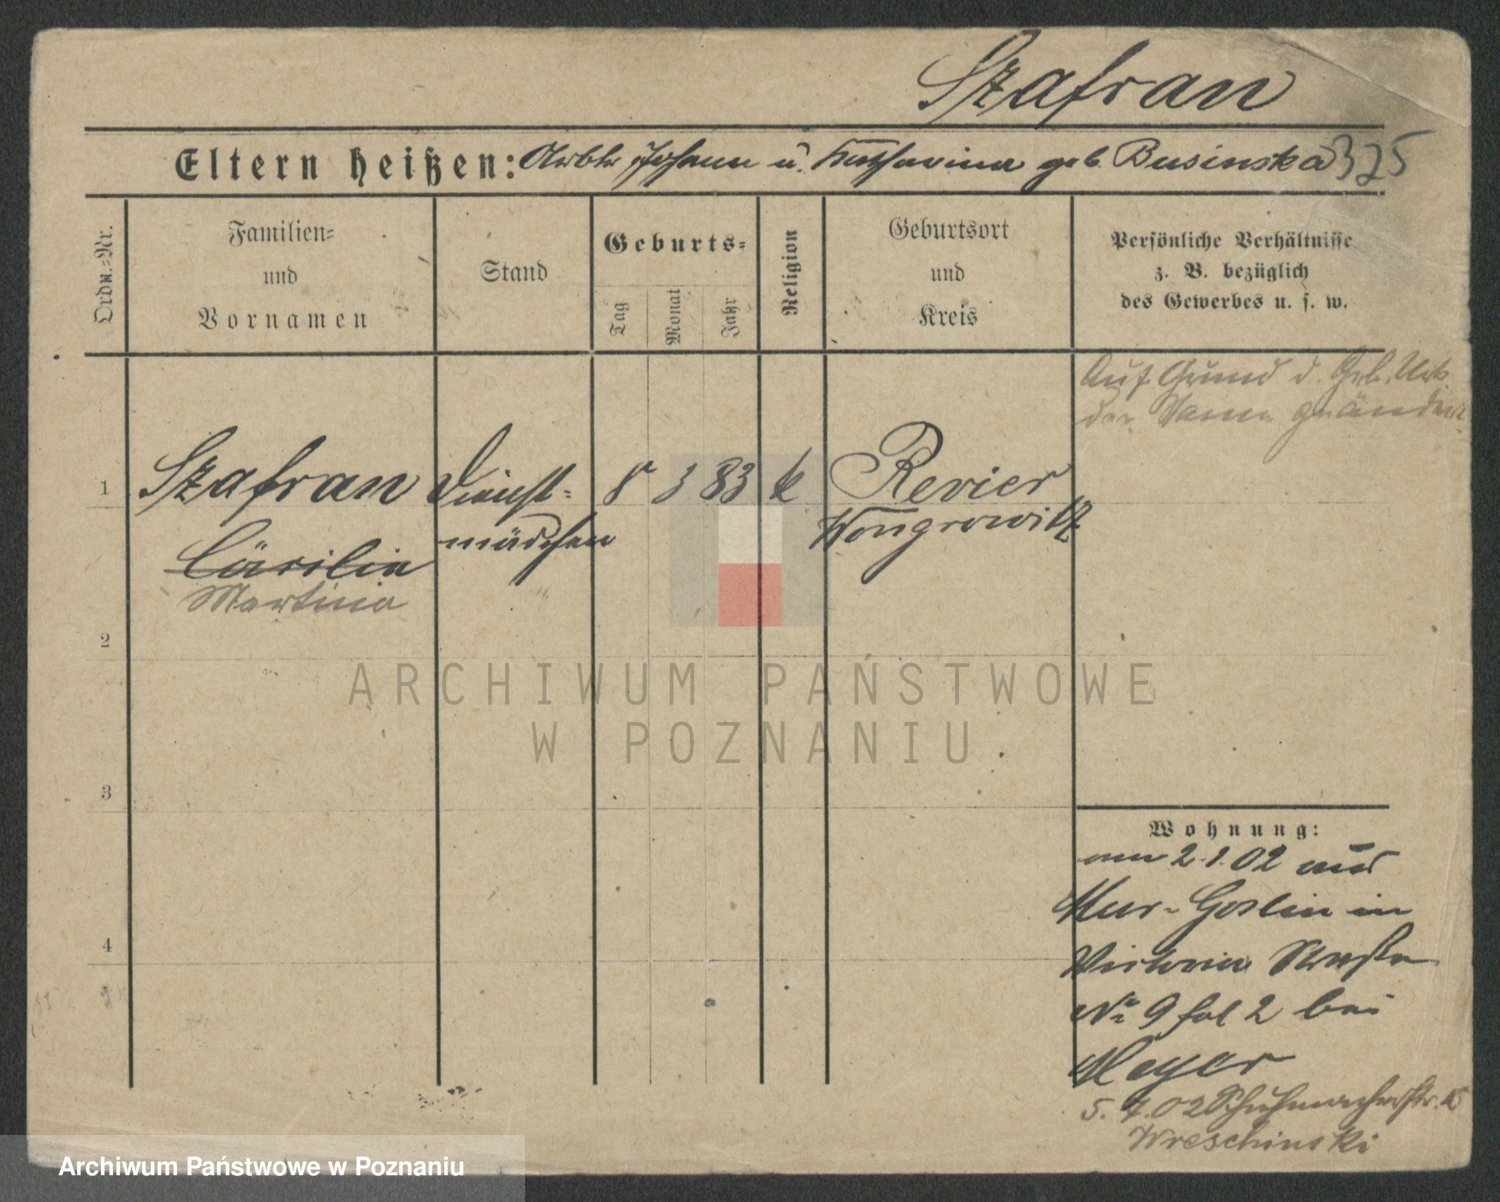 Szafran
Eltern heißen: Arbtr Johann u. Katharina geb. Businska 325
Ordn.-Nr.
Familien-
und
Vornamen
Stand
Geburts-
Tag
Monat
Jahr
Religion
Geburtsort
und
Kreis
Persönliche Verhältnisse
z. B. bezüglich
des Gewerbes u. s. w.
Auf Grund d. Geb. Urk.
der Name geändert.
1 Szafran Dienst- 8 3 83 k Revier
mädchen Wongrowitz
Cäcilie
Martina
2
ARCHIWUM PAŃSTWOWE
W POZNANIU
3
Wohnung:
am 2.1.02 aus
Mur-Goslin in
Victoria Straße
No 9 hof 2 bei
Meyer
4
5.4.02 Schuhmacherstr. 15
Wreschinski
Archiwum Państwowe w Poznaniu